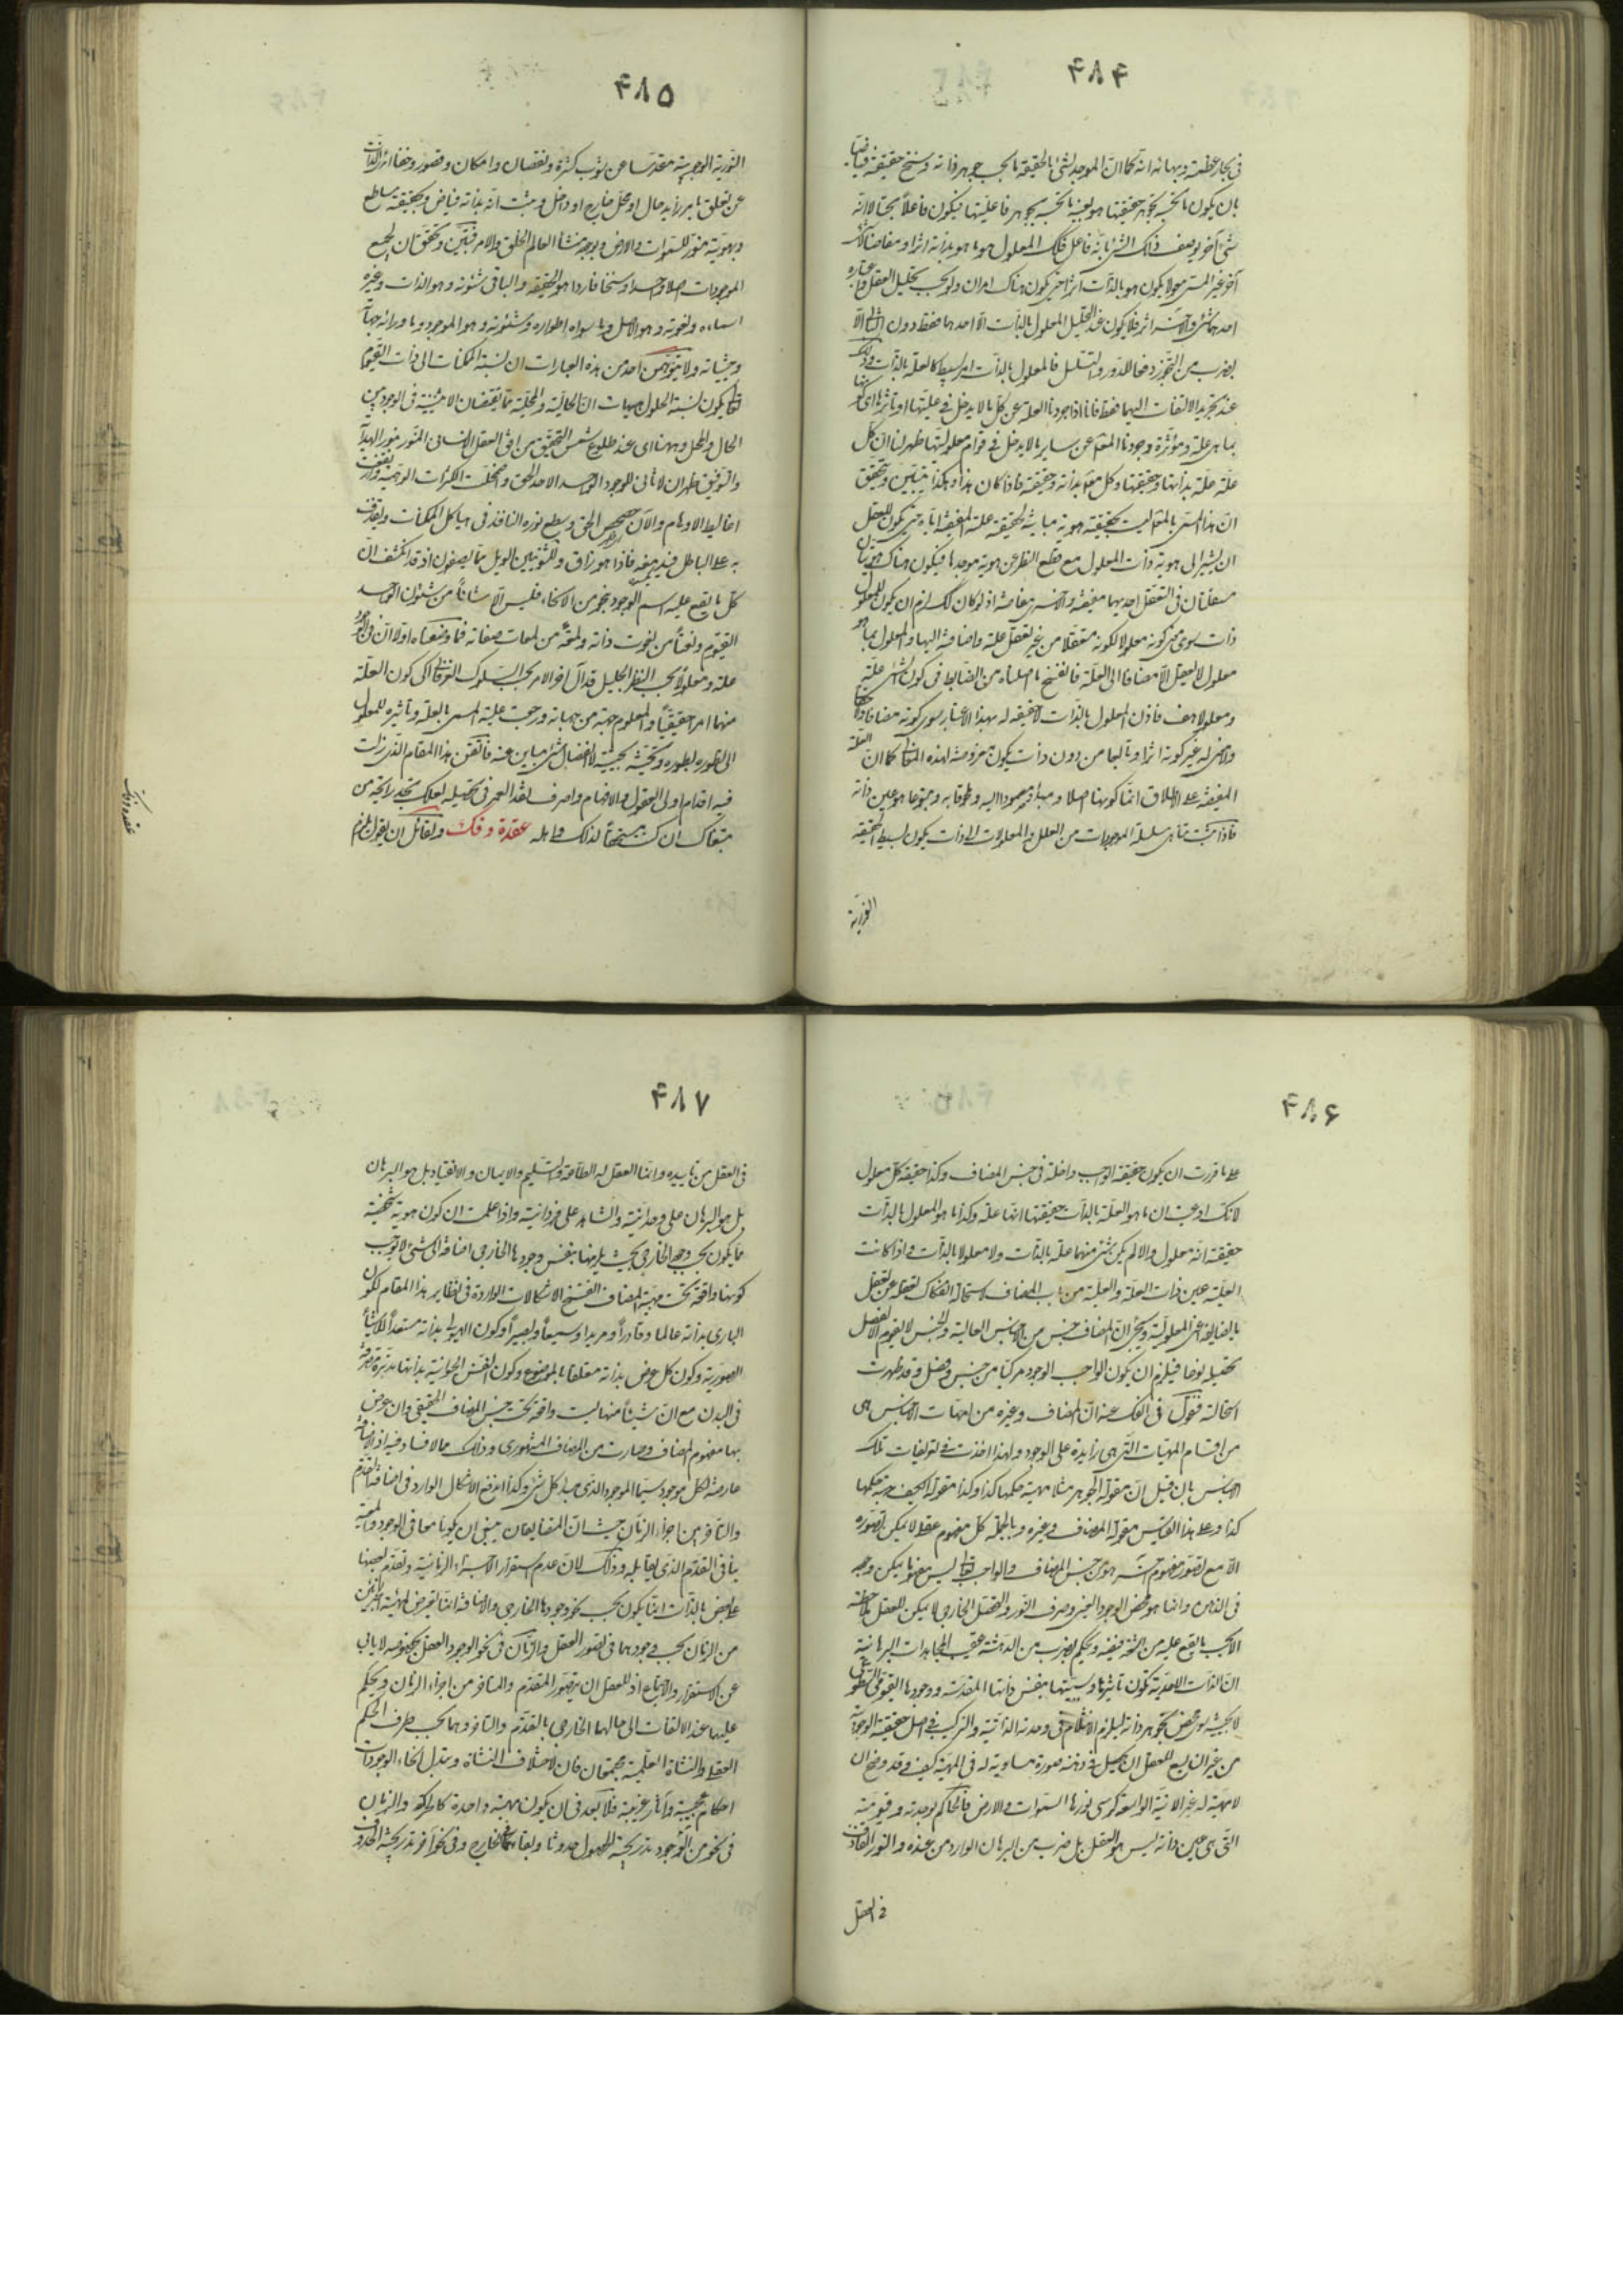 ۴۸۴
فی بحار عظمته وبهائه انه کما ان الموجد لشئ بالحقیقة ما بحسب جوهر ذاته وسنخ حقیقته فیاضا
بان یکون ما بحسب تجوهر حقیقتها هو بعینه ما بحسب تجوهر فاعلیتها فیکون فاعلا بحتا لا انه
شئ آخر یوصف ذلک الشئ بانه فاعل فکذلک المعلول هو ما هو بذاته اثر ومفاض لا شئ
آخر غیر المسمی معلولا یکون هو بالذات اثرا حتی یکون هناک امران ولو بحسب تحلیل العقل واعتباره
احدهما شئ والآخر اثر فلا یکون عند التحلیل المعلول بالذات الا احدهما فقط دون الثانی الا
بضرب من التجوز دفعا للدور والتسلسل فالمعلول بالذات امر بسیط کالعلة بالذات وذلک
عند تجرید الالتفات الیهما فقط فانا اذا جردنا العلة عن کل ما لا یدخل فی علیتها وتأثیرها ای کونها
بما هی علة ومؤثرة وجردنا المعلول عن سایر ما لا یدخل فی قوام معلولیتها ظهر لنا ان کل
علة علة بذاتها وحقیقتها وکل معلول معلول بذاته وحقیقته فاذا کان هذا هکذا یتبین ویتحقق
ان هذا المسمی بالمعلول لیست لحقیقته هویة مباینة لحقیقة علته المفیضة ایاه حتی یکون للعقل
ان یشیر الی هویة ذات المعلول مع قطع النظر عن هویة موجدها فیکون هناک هویتان
مستقلتان فی التعقل احدیهما مفیضة والآخر مفاضة اذ لو کان کذلک لزم ان یکون للمعلول
ذات سوی معنی کونه معلولا لکونه متعقلا من غیر تعقل علته واضافته الیها والمعلول بما هو
معلول لا یعقل الا مضافا الی العلة فانفسخ ما اصلناه من الضابط فی کون الشئ علة
ومعلولا هف فاذن المعلول بالذات لا حقیقة له بهذا الاعتبار سوی کونه مضافا ولاحقا
ولا معنی له غیر کونه اثرا وتابعا من دون ذات یکون معروضة لهذه المعانی کما ان العلة
المفیضة علی الاطلاق انما کونها اصلا ومبدأ ومصمودا الیه وملحوقا به ومتبوعا هو عین ذاته
فاذا ثبت تناهی سلسلة الموجودات من العلل والمعلولات الی ذات یکون بسیط الحقیقة
النوریة
۴۸۵
النوریة الوجودیة مقدسا عن شوب کثرة ونقصان وامکان وقصور وخفاء بریء الذات
عن تعلق بامر زاید حال او محل خارج او داخل وثبت انه بذاته فیاض وبحقیقته ساطع
وبهویته منور للسموات والارض وبوجوده منشأ لعالم الخلق والامر فتبین وتحقق ان لجمیع
الموجودات اصلا واحدا وسنخا فاردا هو الحقیقة والباقی شئونه وهو الذات وغیره
اسماءه ونعوته وهو الاصل وما سواه اطواره وشئونه وهو الموجود وما ورائه جهاته
وحیثیاته ولا یتوهمن احد من هذه العبارات ان نسبة الممکنات الی ذات القیوم
تعالی یکون نسبة الحلول هیهات ان الحالیة والمحلیة مما یقتضیان الاثنینیة فی الوجود بین
الحال والمحل وههنا ای عند طلوع شمس التحقیق من افق العقل الانسانی المتنور بنور الهدایة
والتوفیق ظهر ان لا ثانی للوجود الواحد الاحد الحق واضمحلت الکثرات الوهمیة وارتفعت
اغالیط الاوهام والآن حصحص الحق وسطع نوره النافذ فی هیاکل الممکنات ویقذف
به علی الباطل فیدمغه فاذا هو زاهق وللثنویین الویل مما یصفون اذ قد انکشف ان
کل ما یقع علیه اسم الوجود بنحو من الانحاء فلیس الا شانا من شئون الواحد
القیوم ونعتا من نعوت ذاته ولمعة من لمعات صفاته فما وضعناه اولا ان فی الوجود
علة ومعلولا بحسب النظر الجلیل قد آل آخر الامر بحسب السلوک العرفانی الی کون العلة
منهما امرا حقیقیا والمعلول جهة من جهاته ورجعت علیة المسمی بالعلة وتأثیره للمعلول
الی تطوره بطور وتحیثه بحیثیة لا انفصال شئ مباین عنه فاتقن هذا المقام الذی زلت
فیه اقدام اولی العقول والافهام واصرف نقد العمر فی تحصیله لعلک تجد رایحة من
مبتغاک ان کنت مستحقا لذلک واهله عقدة وفک ولقائل ان یقول یلزم
عقده وفک
۴۸۶
علی ما قررت ان یکون حقیقة الواجب داخلة فی جنس المضاف وکذا حقیقة کل معلول
لانک ادعیت ان ما هو العلة بالذات حقیقتها انها علة وکذا ما هو المعلول بالذات
حقیقته انه معلول والا لم یکن شئ منهما علة بالذات ولا معلولا بالذات واذا کانت
العلیة عین ذات العلة والعلیة من باب المضاف لاستحالة انفکاک تعقله عن تعقل
ما یضایفه اعنی المعلولیة ویجیئ ان المضاف جنس من الاجناس العالیة والجنس لا یقوم الا بفصل
تحصیله نوعا فیلزم ان یکون الواجب الوجود مرکبا من جنس وفصل وقد ظهرت
استحالته فنقول فی الفک عنه ان المضاف وغیره من امهات الاجناس هی
من اقسام المهیات التی هی زایدة علی الوجود ولهذا اخذت فی تعریفات تلک
الاجناس بان قیل ان مقولة الجوهر مثلا مهیة حکمها کذا وکذا مقولة الکیف مهیة حکمها
کذا وعلی هذا القیاس مقولة المضاف وغیره وبالجملة کل مفهوم عقلی لا یمکن تصوره
الا مع تصور مفهوم آخر هو من جنس المضاف والواجب تعالی لیس مفهوما یمکن وجوده
فی الذهن وانما هو محض الوجود العینی وصرف النور والتحصل الخارجی لا یمکن للعقل ملاحظته
الا بحسب ما یقع علیه من اشعة فیضه ویحکم بضرب من الدهشة عقیب المجاهدات البرهانیة
ان الذات الاحدیة تکون تأثیرها وسببیتها بنفس ذاتها المقدسة ووجودها القیومی السطوعی
لا بحیثیة سوی محض تجوهر ذاته لیلزم الانثلام فی وحدته الذاتیة والترکیب فی اصل حقیقته الوجوبیة
من غیر ان یسع للعقل ان یحصل فی ذهنه صورة مساویة له فی المهیة کیف وقد وضح ان
لا مهیة له غیر الانیة الواسعة کرسی نورها السموات والارض فالحاکم بوحدته وقیومیته
التی هی عین ذاته لیس هو العقل بل ضرب من البرهان الوارد من عنده والنور القاذف
فی العقل
۴۸۷
فی العقل من تاییده وانما العقل له الطاعة والتسلیم والایمان والانقیاد بل هو البرهان
بل هو البرهان علی وحدانیته والشاهد علی فردانیته واذا علمت ان کون هویة شخصیة
مما یکون بحسب وجوده الخارجی بحیث یلزمها بنفس وجودها الخارجی اضافة الی شئ لا یوجب
کونها واقعة تحت مهیة المضاف انفسخ الاشکالات الواردة فی نظایر هذا المقام لکون
الباری بذاته عالما وقادرا ومریدا وسمیعا وبصیرا وکون الهیولی بذاته مستعدا للاشیاء
الصوریة وکون کل عرض بذاته متعلقا بالموضوع وکون النفس الحیوانیة بذاتها مدبرة متصرفة
فی البدن مع ان شیئا منها لیست واقعة تحت جنس المضاف الحقیقی وان عرض
بها مفهوم المضاف وصارت من المضاف المشهوری وذلک مما لا فساد فیه اذ الاضافة
عارضة لکل موجود سیما الموجود الذی مبدأ کل شئ وکذا اندفع الاشکال الوارد فی اضافة التقدم
والتأخر بین اجزاء الزمان حیث ان المتضایفان ینبغی ان یکونا معا فی الوجود والمعیة
ینافی التقدم الذی یقابلها وذلک لان عدم استقرار الاجزاء الزمانیة وتقدم بعضها
علی بعض بالذات انما یکون بحسب نحو وجودها الخارجی والاضافة انما تعرض لمهیة الجزئین
من الزمان بحسب وجودهما فی تصور العقل والزمان فی نحو الوجود العقلی بخصوصه لا یابی
عن الاستقرار والاجتماع اذ للعقل ان یتصور المتقدم والمتاخر من اجزاء الزمان ویحکم
علیهما عند الالتفات الی حالهما الخارجی بالتقدم والتاخر وهما بحسب ظرف الحکم
العقلی والنشأة العلمیة مجتمعان فان لاختلاف النشأة وتبدل انحاء الوجودات
احکام عجیبة وآثار غریبة فلا بعد فی ان یکون مهیة واحدة کالحرکة والزمان
فی نحو من الوجود تدریجیة الحصول حدوثا وبقاء کما فی الخارج وفی نحو آخر تدریجیة الحدوث